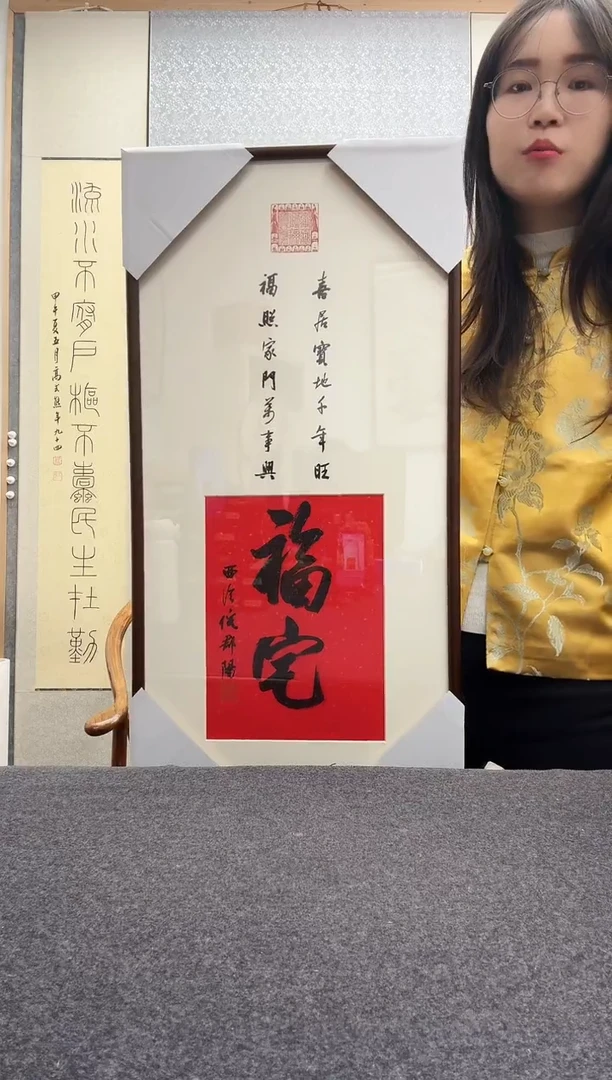 喜居寶地千年旺
福照家門萬事興
福宅
西泠
流水不腐戶樞不蠹民生在勤
甲午夏五月高式熊年九十四